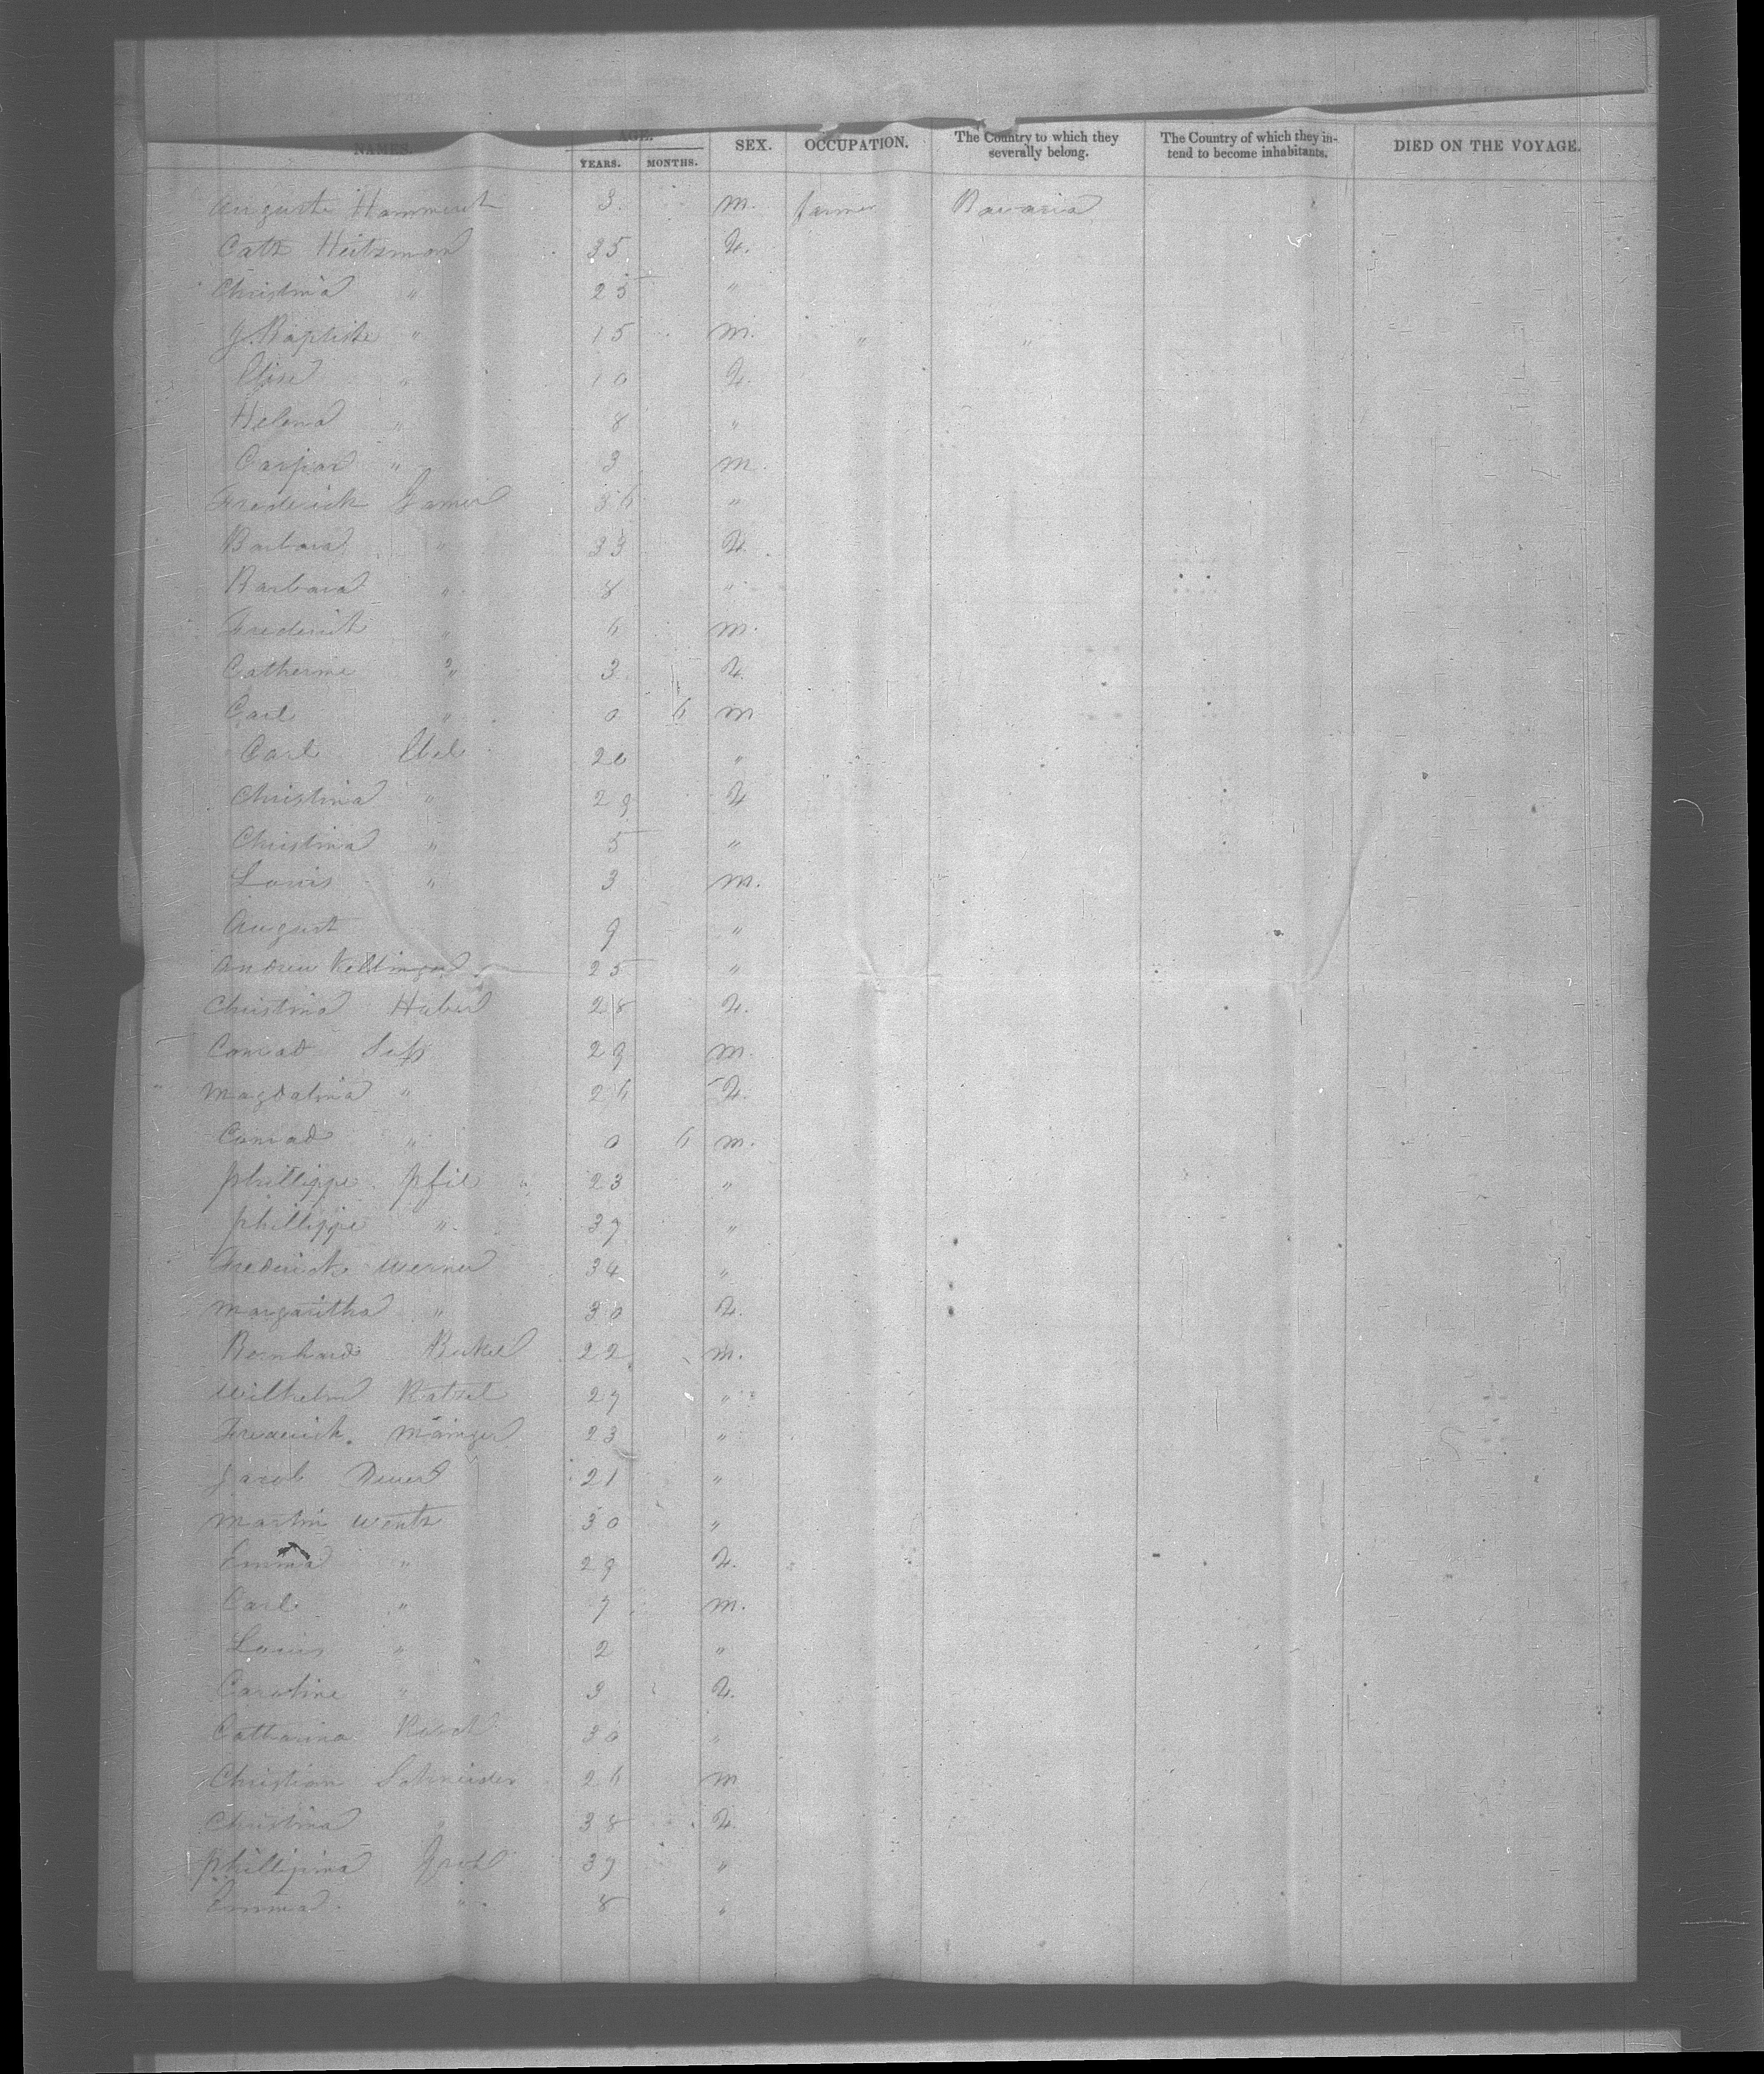 NAMES. AGE. SEX. OCCUPATION. The Country to which they severally belong. The Country of which they intend to become inhabitants. DIED ON THE VOYAGE.
YEARS. MONTHS.
Auguste 3 m. farmer Bavaria
Cath Heitzman 35 F.
Christina " 25 "
J. Baptiste " 15 m. " "
Elise " 10 F.
Helena " 8 "
Caspar " 3 m.
Frederick 36 "
Barbara " 33 F.
Barbara " 8 "
Frederick " 6 m.
Catherine " 3 F.
Carl " 0 6 m
Carl 20 "
Christina " 29 F
Christina " 5 "
Louis " 3 m.
August 9 "
Andrew 25 "
Christina Huber 28 F.
Conrad 29 m.
Magdalina " 26 F.
Conrad " 0 6 m.
Phillippe Pfiel " 23 "
Phillippe " 37 "
Frederick Werner 34 "
Margaritha " 30 F.
Bernhard 22 m.
Wilhelm Ratzel 27 "
Frederick. 23 "
Jacob 21 "
Martin Wentz 30 "
Emma " 29 F.
Carl " 7 m.
Louis " 2 "
Caroline " 3 F.
Catharina 30 "
Christian Schneider 26 m
Christina " 38 F.
Phillipina 37 "
Emma " 8 "